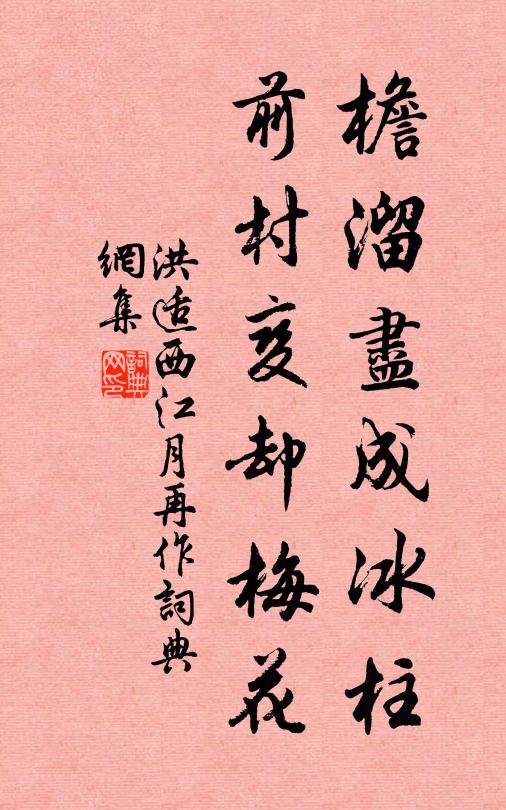 檐溜盡成冰柱
前村变却梅花
洪适西江月再作詞典
網集
詞典
网印